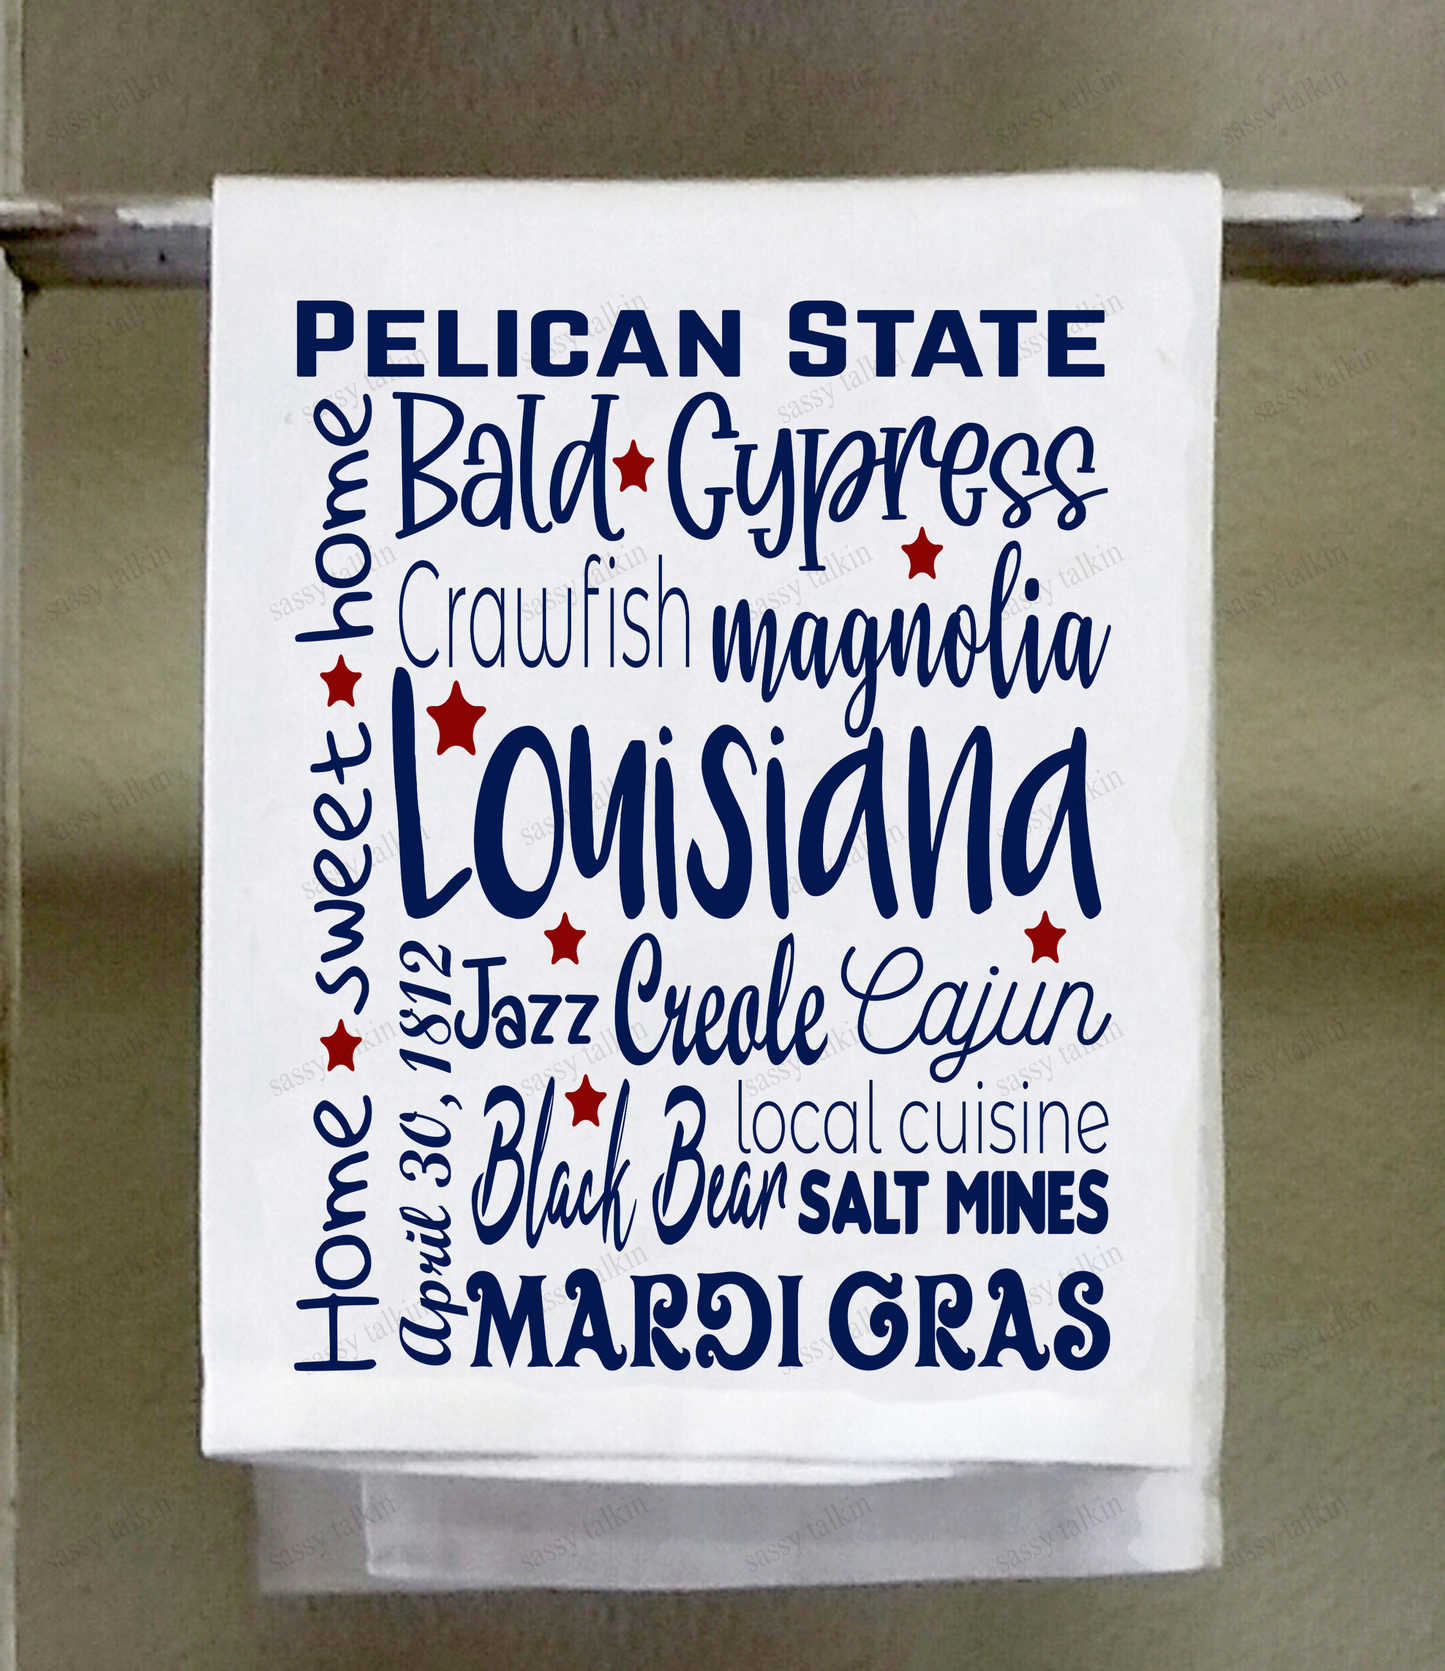 PELICAN STATE
Bald Cypress
Crawfish magnolia
Louisiana
Jazz Creole Cajun
Black Bear local cuisine
SALT MINES
MARDI GRAS
Home sweet home
April 30, 1812
sassy talkin